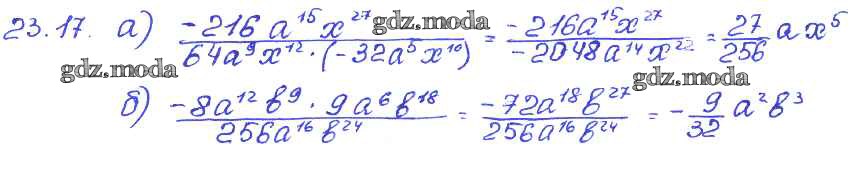 23.17. а) -216a¹⁵x²⁷ / 64a⁹x¹²·(-32a⁵x¹⁰) = -216a¹⁵x²⁷ / -2048a¹⁴x²² = 27/256 ax⁵
gdz.moda
gdz.moda
gdz.moda
б) -8a¹²b⁹·9a⁶b¹⁸ / 256a¹⁶b²⁴ = -72a¹⁸b²⁷ / 256a¹⁶b²⁴ = -9/32 a²b³